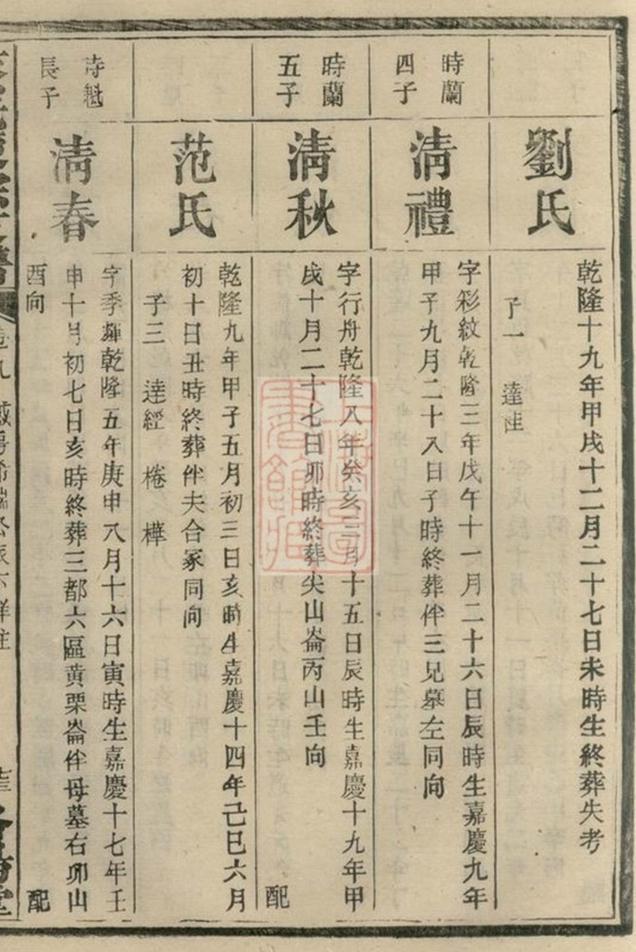 劉氏
乾隆十九年甲戌十二月二十七日未時生終葬失考
子一 達
時蘭
四子
清禮
字彩紋乾隆三年戊午十一月二十六日辰時生嘉慶九年
甲子九月二十八日子時終葬伴三兄墓左同向
時蘭
五子
清秋
字行舟乾隆八年癸亥三月十五日辰時生嘉慶十九年甲
戌十月二十七日卯時終葬尖山崙丙山壬向 配
范氏
乾隆九年甲子五月初三日亥時生嘉慶十四年己巳六月
初十日丑時終葬伴夫合冢同向
子三 達經 棬 樺
時魁
長子
清春
字季輝乾隆五年庚申八月十六日寅時生嘉慶十七年壬
申十月初七日亥時終葬三都六區黃栗崙伴母墓右卯山
酉向 配
卷九